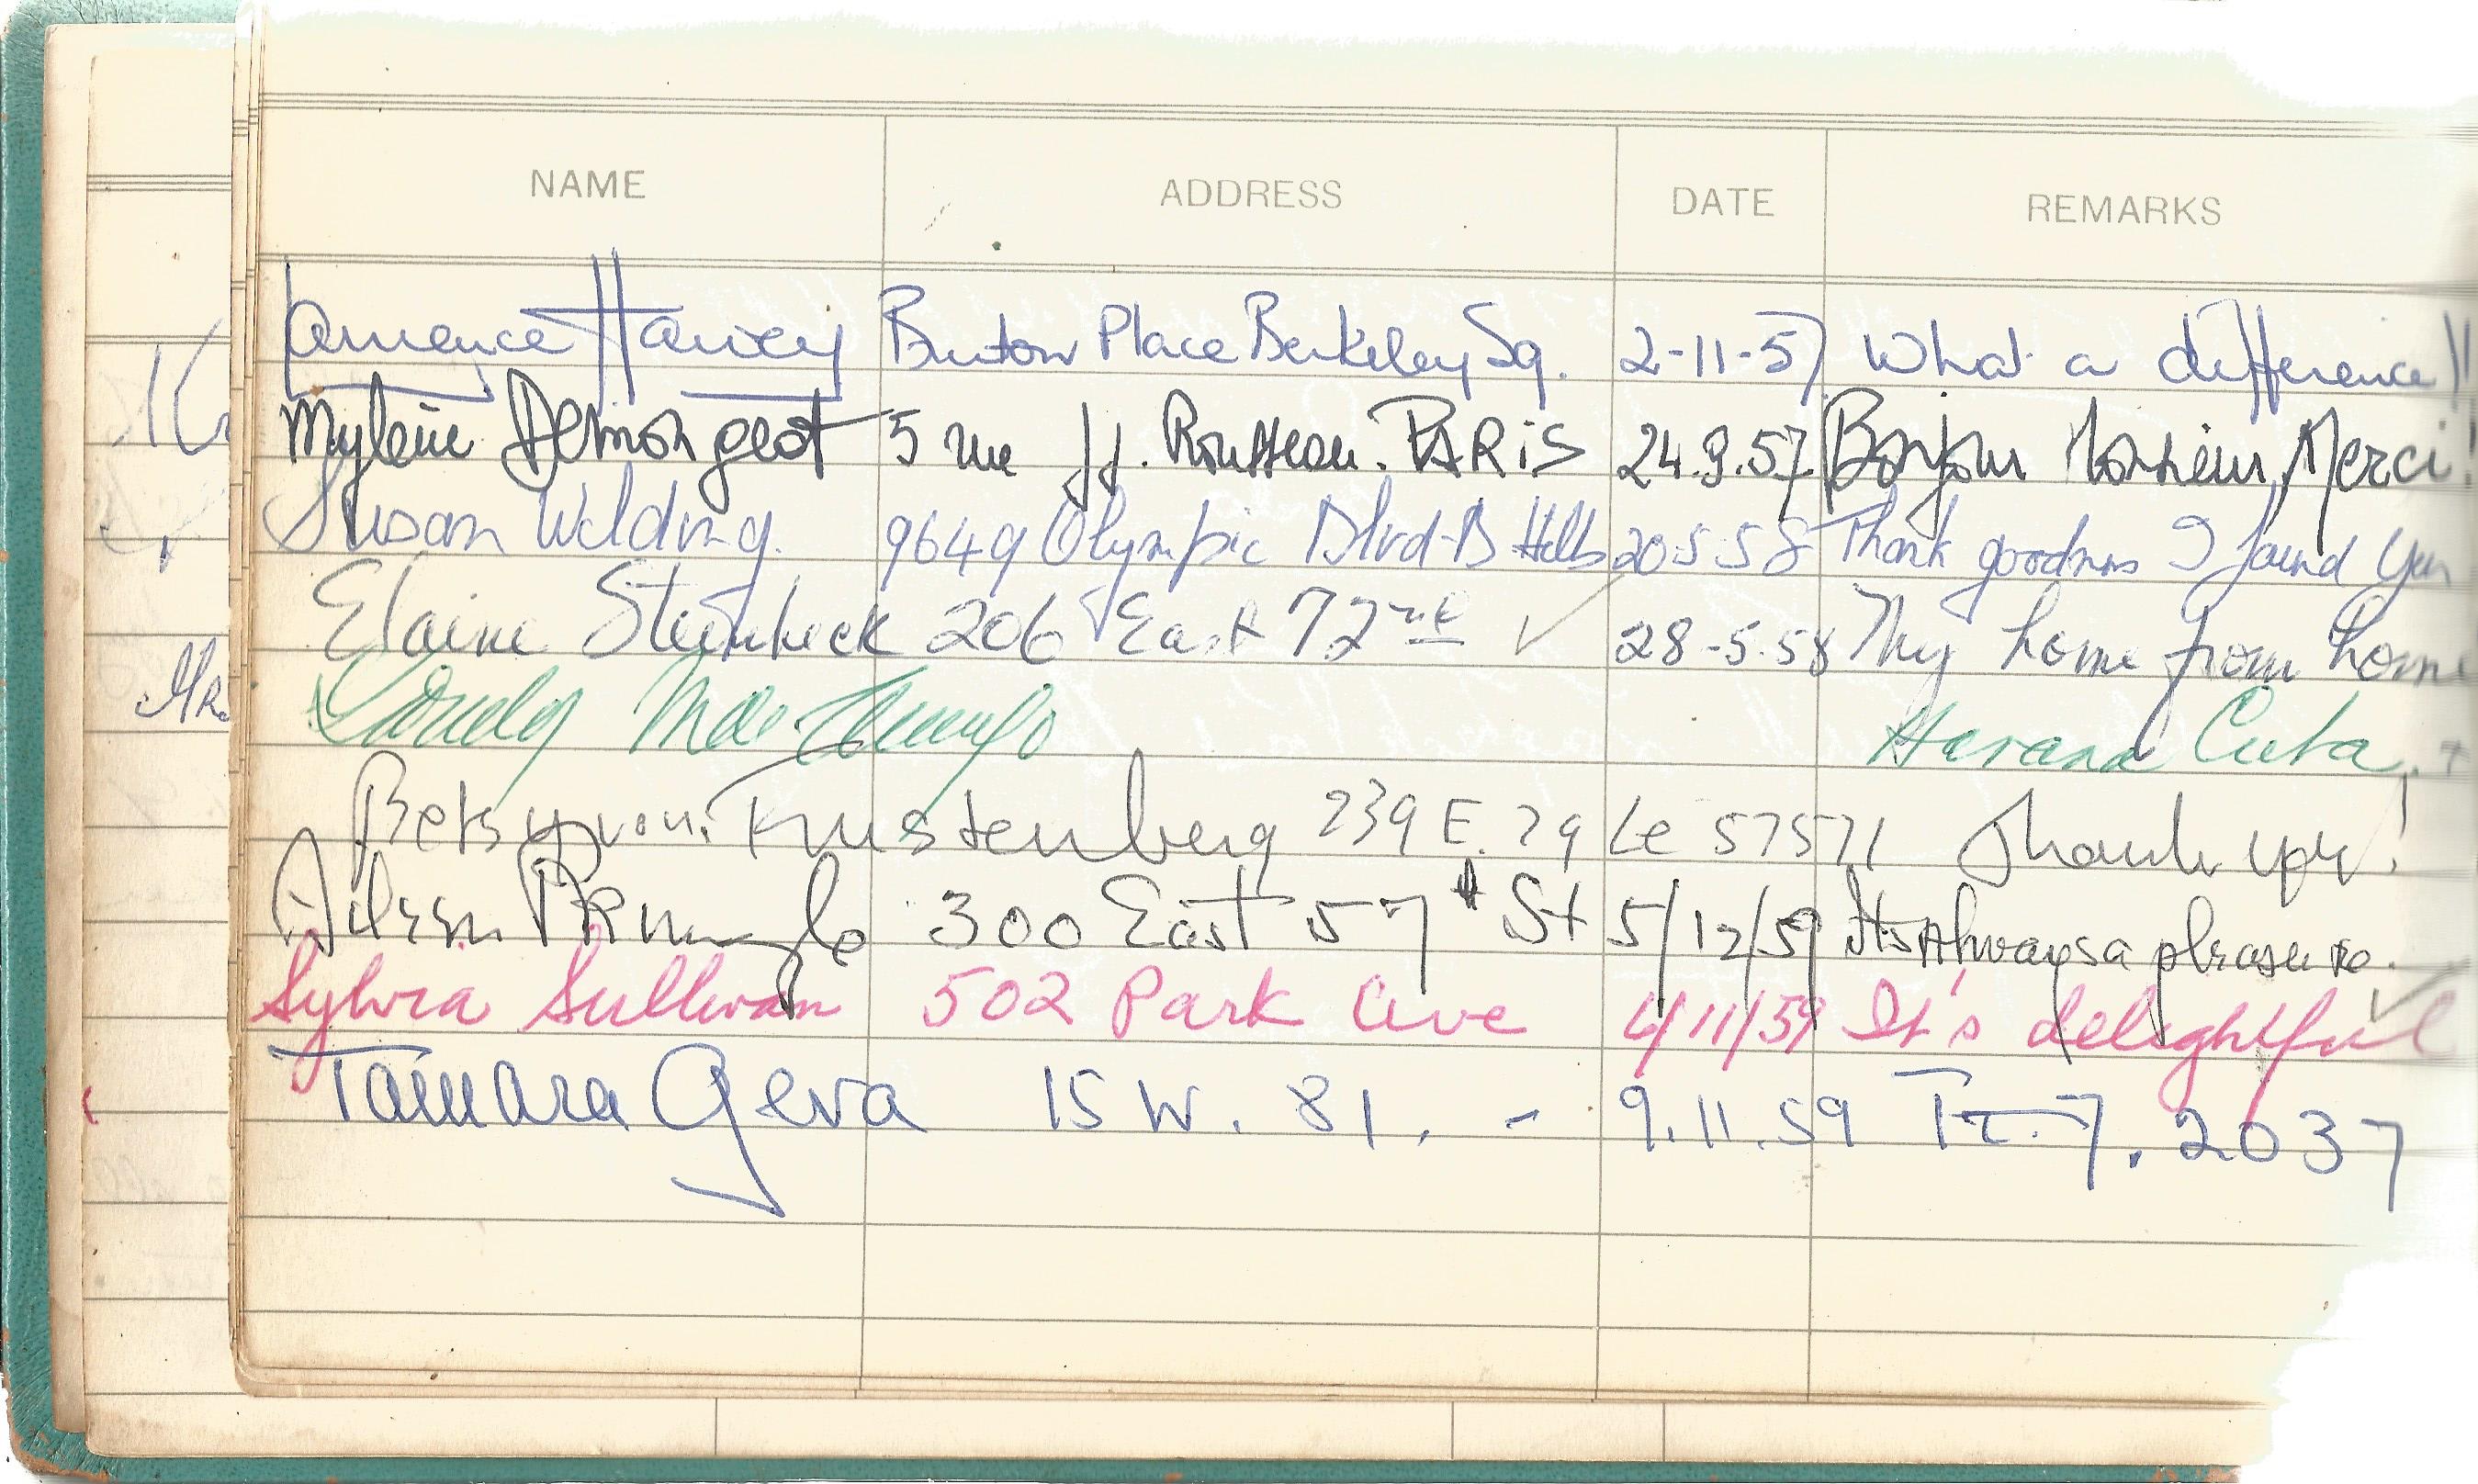 NAME ADDRESS DATE REMARKS
Laurence Harvey Bruton Place Berkeley Sq. 2-11-57 What a difference!!
Mylène Demongeot 5 rue J.J. Rousseau. PARIS 24.9.57 Bonjour Monsieur, Merci!
Susan 9649 Olympic Blvd-B Hills 20.5.58 Thank goodness I found you
Elaine Steinbeck 206 East 72nd ✓ 28-5.58 My home from home
Havana Cuba.
Betsy von Furstenberg 239 E. 79 Le 57571 Thank you!
300 East 57th St 5/12/59 Its Always a pleasure.
Sylvia Sullivan 502 Park Ave 4/11/59 It's delightful
Tamara Geva 15 W. 81. - 9.11.59 Tr. 7. 2037
Mrs.